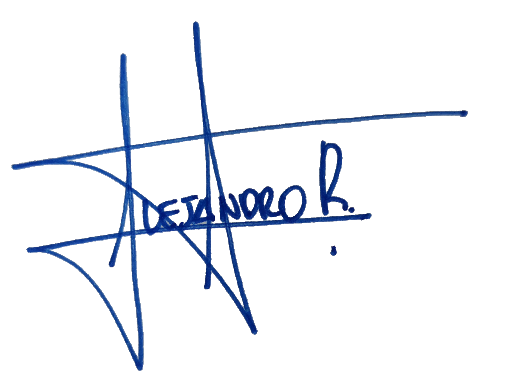 Alejandro R.